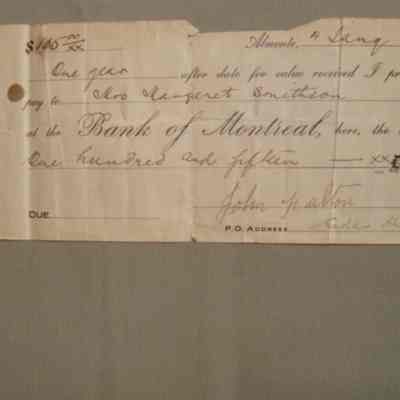 $ 115 00/xx Almonte, 4 Jany
One year after date for value received I p
pay to Mrs Margaret Smithson
at the Bank of Montreal, here, the
One hundred and fifteen — xx
John Patton
DUE P.O. ADDRESS